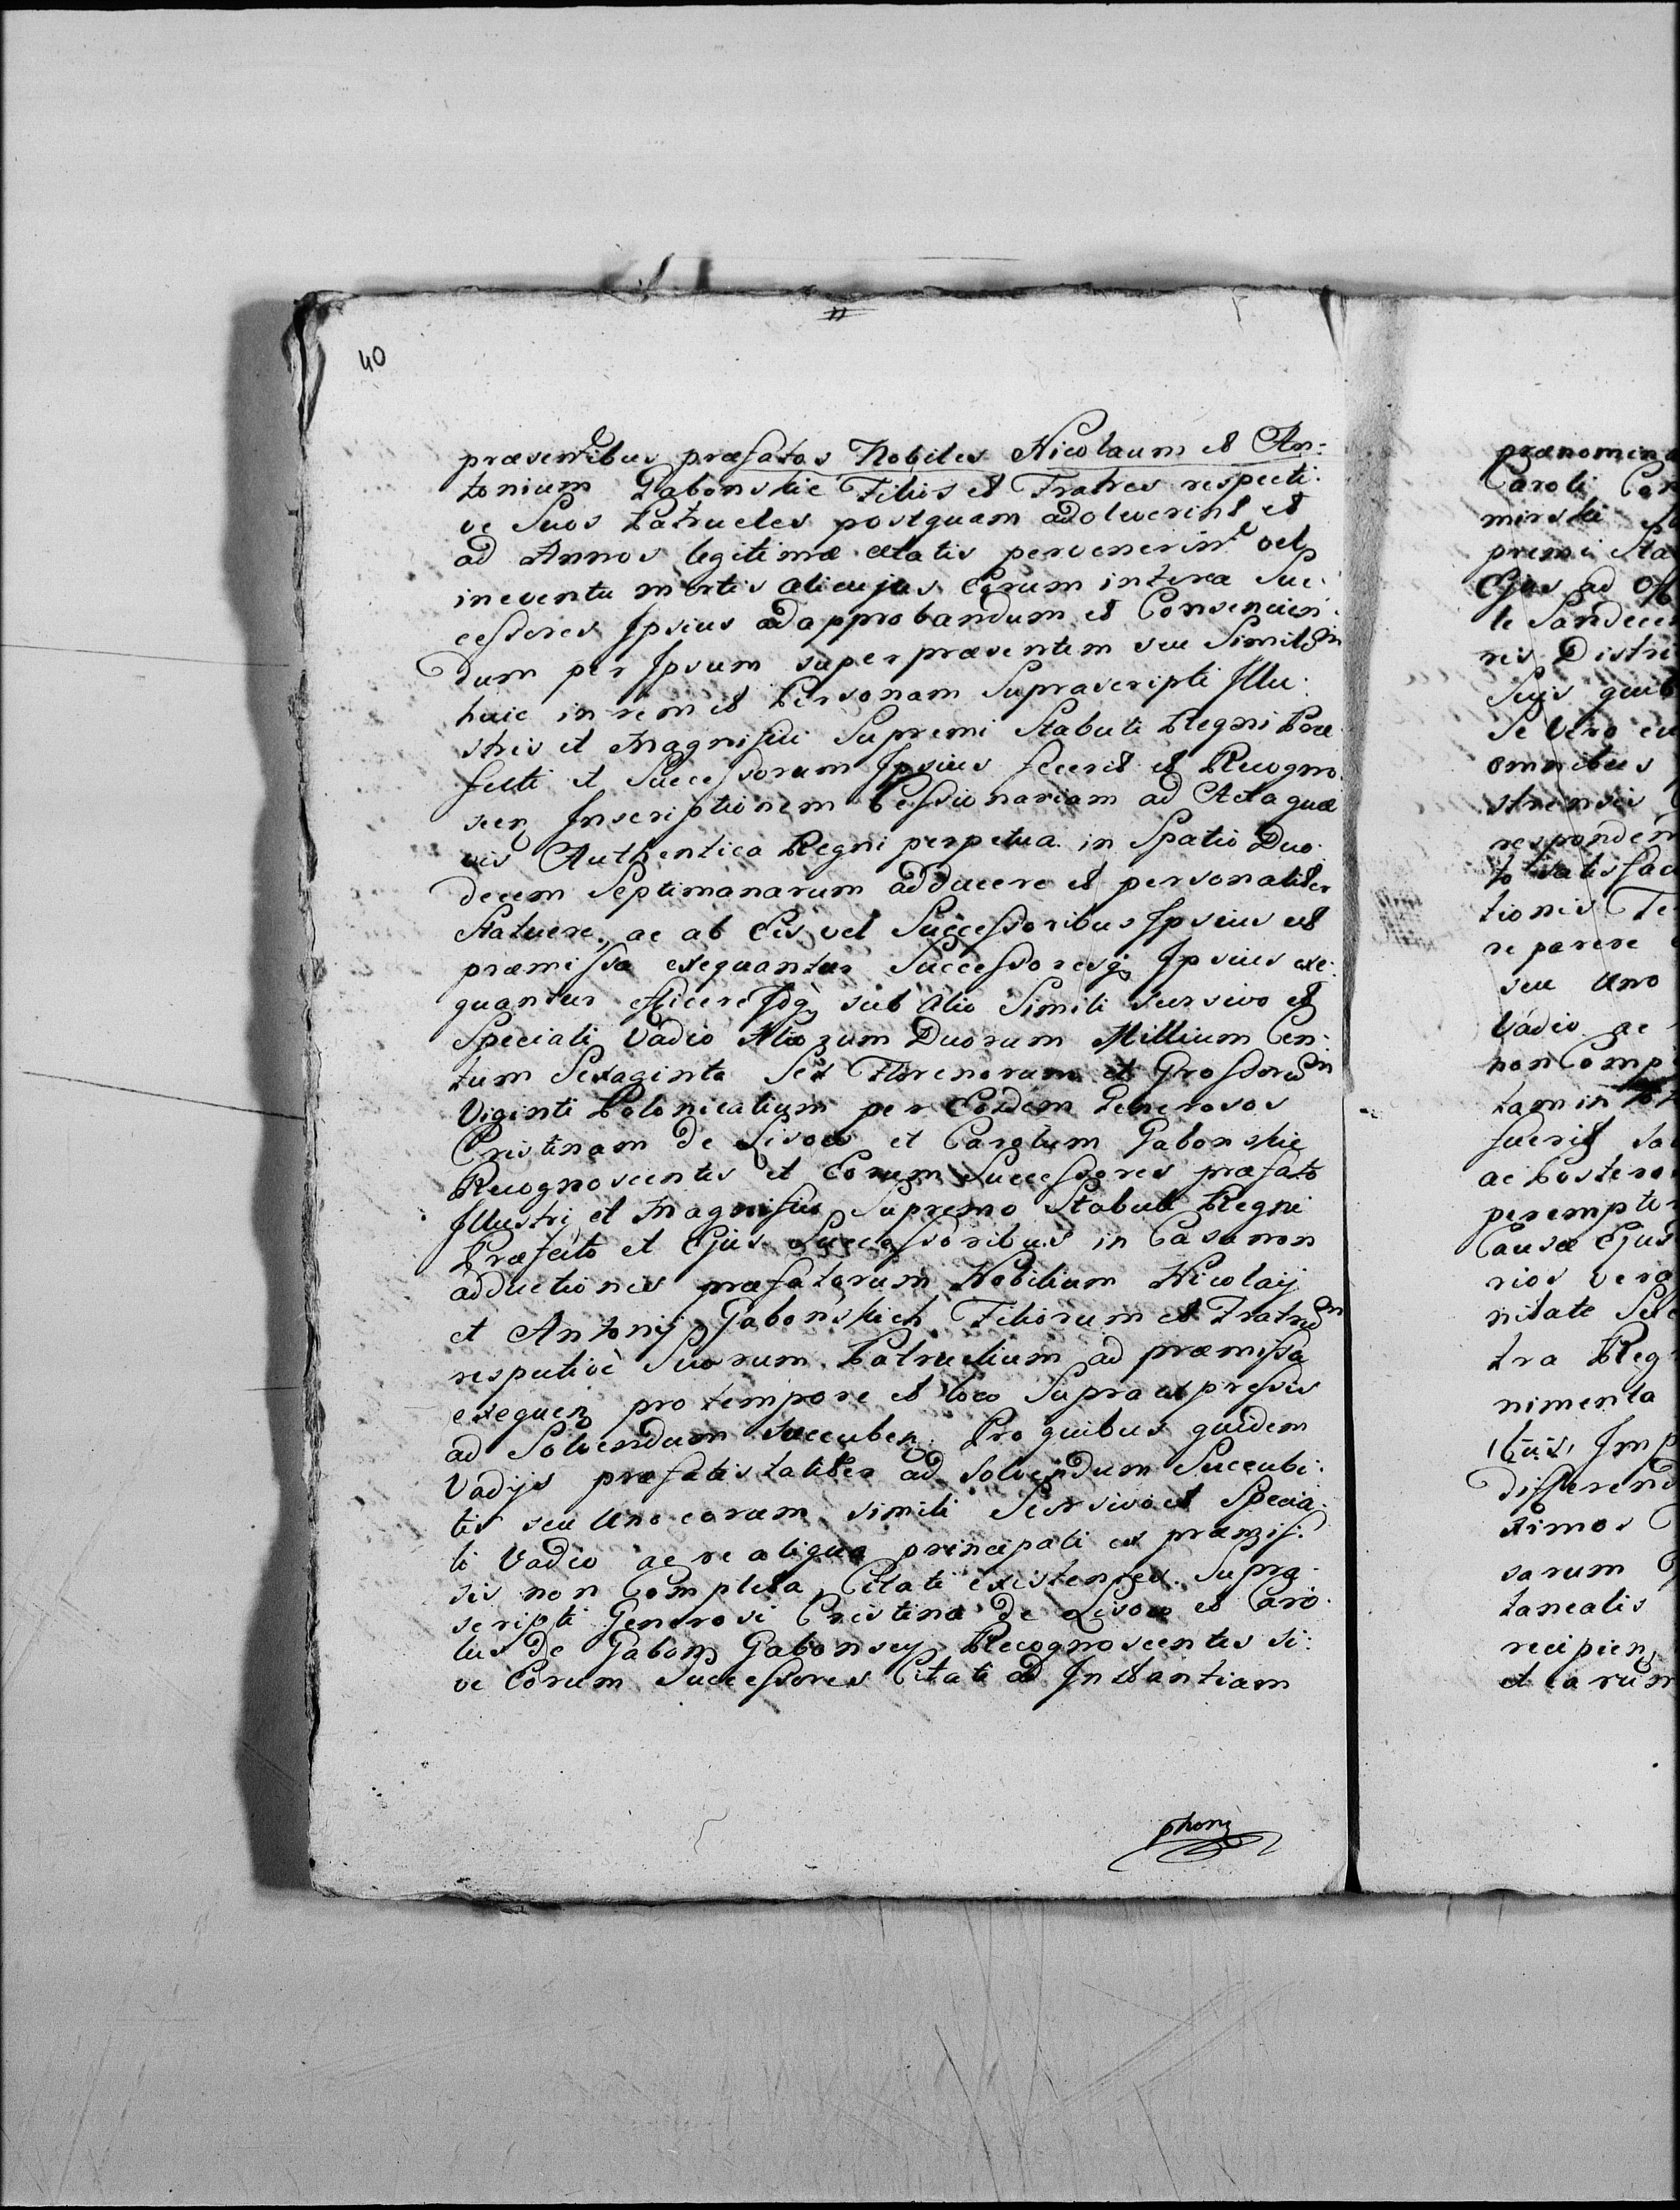 40
præsentibus præfatos Nobiles Nicolaum et An:
tonium Gabonskie Filios et Fratres respecti:
ve Suos Patrueles postquam adoluerint et
ad Annos legitimæ ætatis pervenerint vel
in eventu mortis alicujus Eorum interea Suc:
cessores Ipsius ad approbandum et Consencien:
dum per Ipsum super præsentem seu Similem
huic in rem et Personam Suprascripti Illu:
stris et Magnifici Supremi Stabuli Regni Præ:
fecti et Successorum Ipsius fecerit et Recogno:
scen Inscriptionem Cessionariam ad Acta quæ
vis Authentica Regni perpetua in Spatio Duo:
decem Septimanarum adducere et personaliter
Statuere, ac ab Eis vel Successoribus Ipsius ut
præmissa exequantur Successoresq Ipsius exe:
quantur efficere Idq sub alio Simili sursivo et
Speciali Vadio Aliorum Duorum Millium Cen:
tum Sexaginta Sex Florenorum et Grossorum
Viginti Polonicalium per Eosdem Generosos
Cristinam de Lisow et Carolum Gabonskie
Recognoscentes et Eorum Successores præfato
Illustri et Magnifico Supremo Stabuli Regni
Præfecto et Ejus Successoribus in Casu non
adductionis præfatorum Nobilium Nicolaij
et Antonij Gabonskich Filiorum et Fratrum
respective Suorum Patruelium ad præmissa
exequen pro tempore et loco Supra expressis
ad Solvendum succuben. Pro quibus quidem
Vadijs præfatis taliter ad Solvendum Succubi:
tis seu Uno eorum simili Sursivo et Specia:
li Vadio ac re aliqua principali ex præmis:
sis non Completa, Citati existentes Supra:
scripti Generosi Cristina de Lisow et Caro:
lus de Gabon Gabonscy Recognoscentes si:
ve Eorum Successores Citati ad Instantiam
prænomina
Caroli
mirski
premi Sta
Ejus ad Off
le Sandece
ris Distri
Suis quib
Se Vero
omnibus
strensis
responden
to satisfac
tionis Te
re parere
seu Uno
Vadio ac
non Comp
tam in
fuerit
ac Postero
perempto
Causæ Ejus
rios vero
nitate
tra Reg
nimenta
Imp
differend
ximos
sarum
tanealis
recipien
et earum